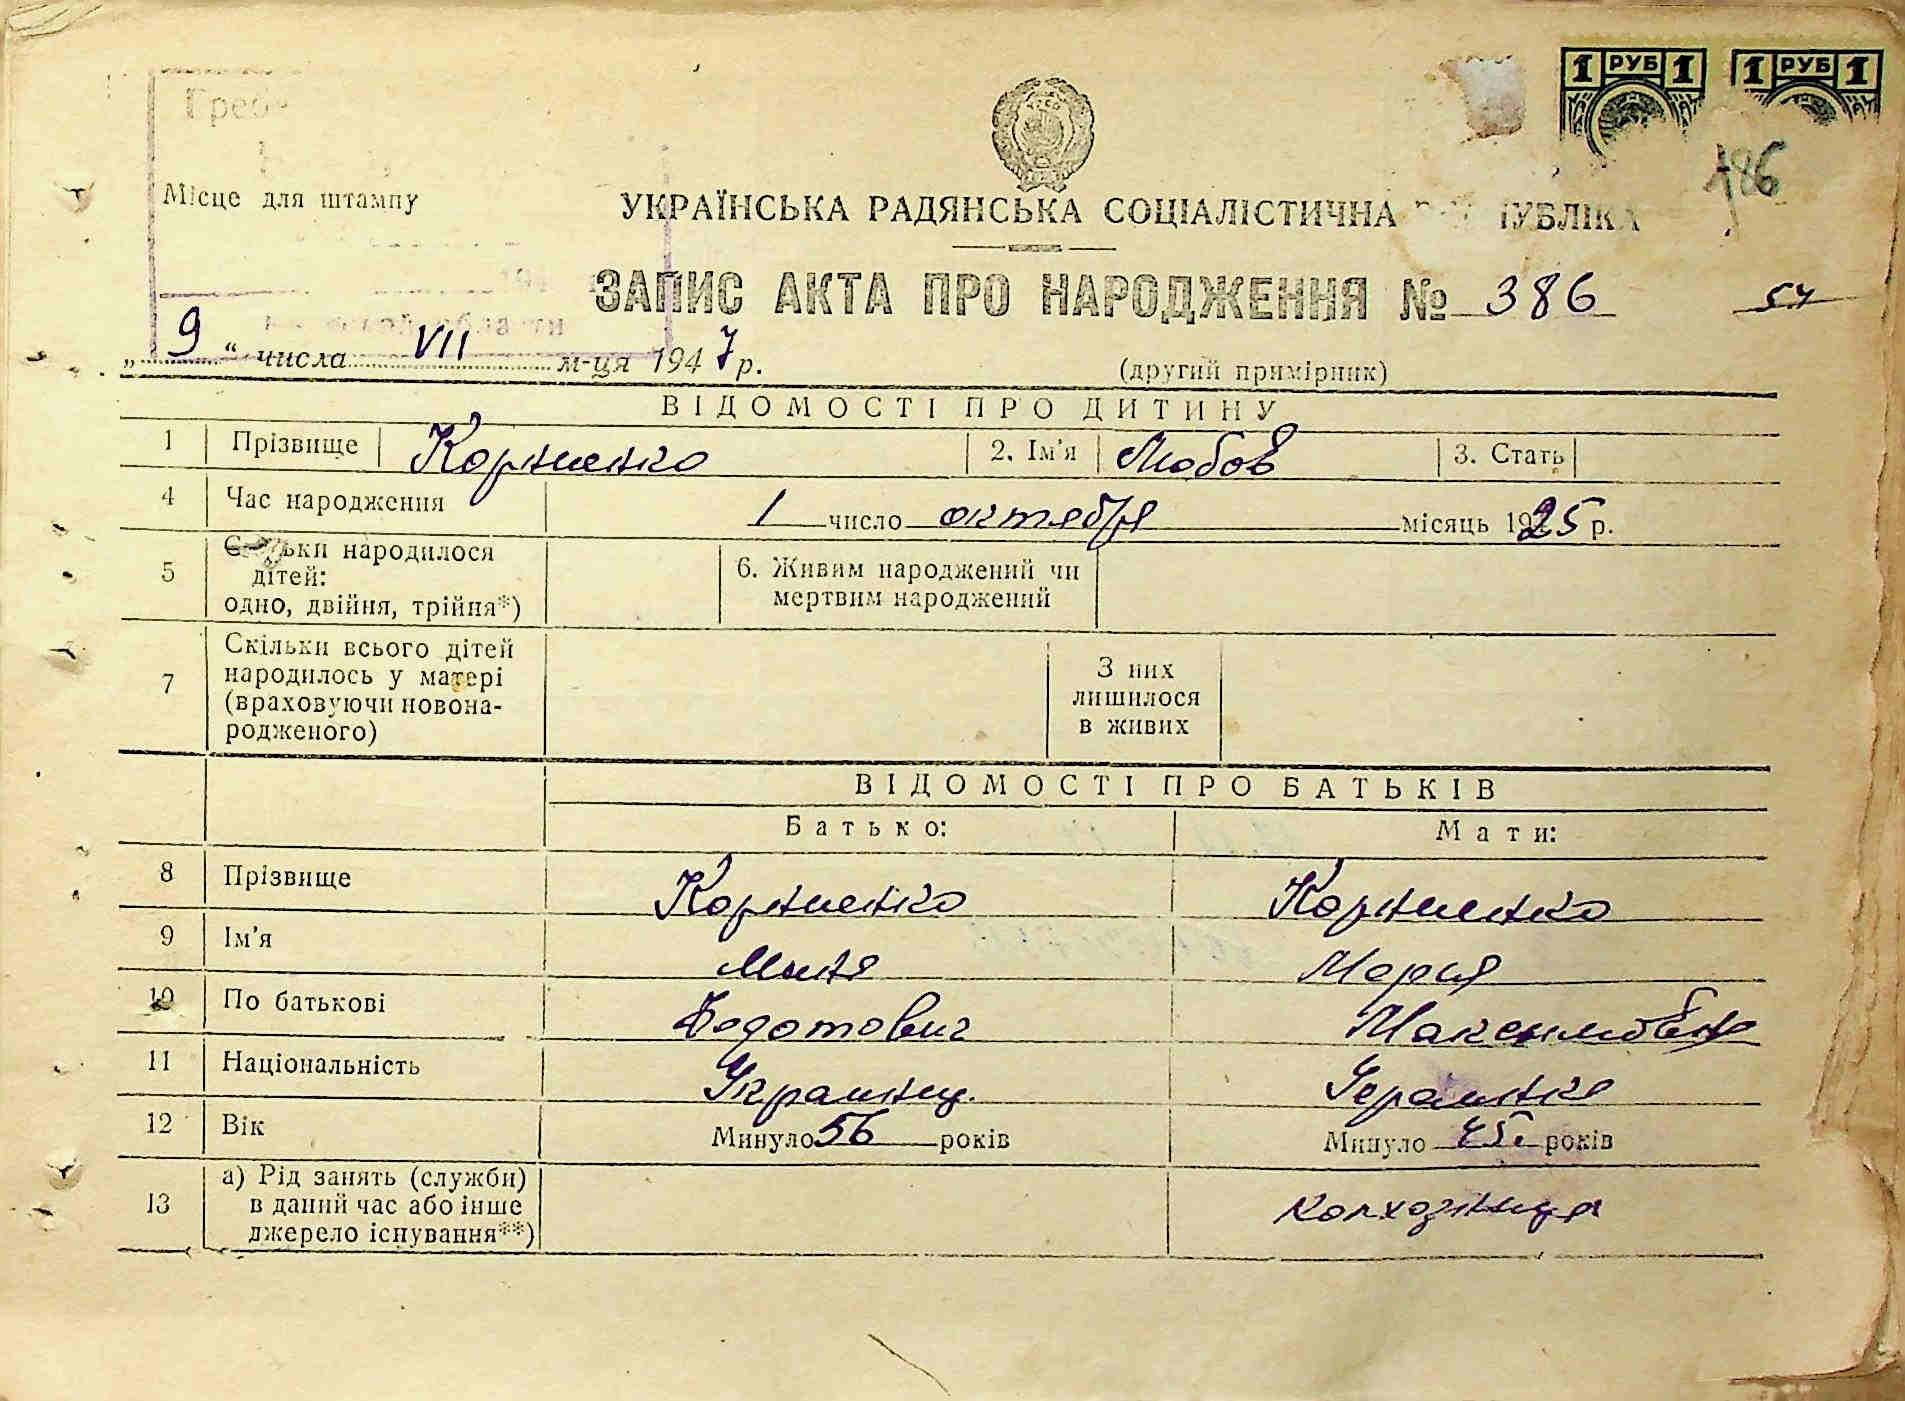 1 РУБ 1 1 РУБ 1
Греб
186
Місце для штампу
УКРАЇНСЬКА РАДЯНСЬКА СОЦІАЛІСТИЧНА ПУБЛІКА
ЗАПИС АКТА ПРО НАРОДЖЕННЯ № 386
54
області
„ 9 “ числа VII м-ця 1947 р.
(другий примірник)
ВІДОМОСТІ ПРО ДИТИНУ
1 Прізвище Корниенко 2. Ім'я Любов 3. Стать
4 Час народження 1 число октября місяць 1925 р.
5 Скільки народилося
дітей:
одно, двійня, трійня*)
6. Живим народжений чи
мертвим народжений
7 Скільки всього дітей
народилось у матері
(враховуючи новона-
родженого)
З них
лишилося
в живих
ВІДОМОСТІ ПРО БАТЬКІВ
Батько: Мати:
8 Прізвище Корниенко Корниенко
9 Ім'я Мина Мария
10 По батькові Федотович Максимовна
11 Національність Украинец. Украинка
12 Вік Минуло 56 років Минуло 45 років
13 а) Рід занять (служби)
в даний час або інше
джерело існування**)
колхозница